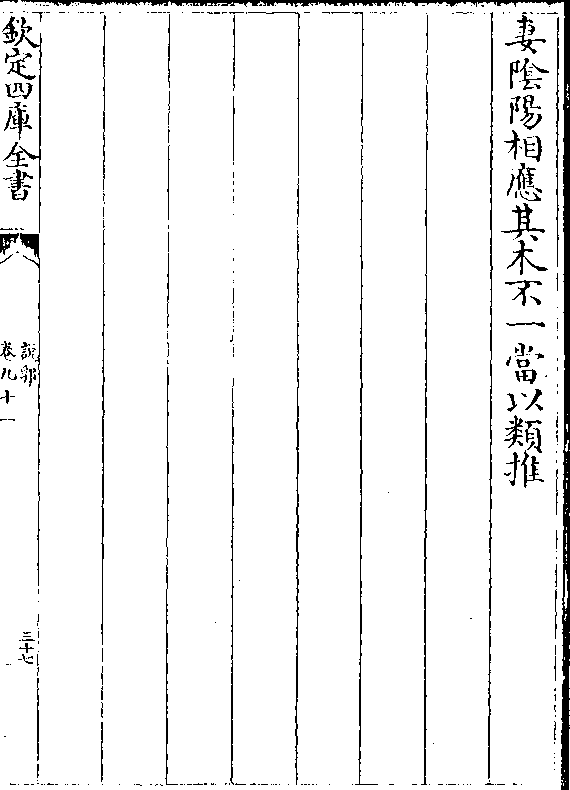 妻陰陽相應其木不一當以類推
欽定四庫全書
說郛
卷九十一
三十七